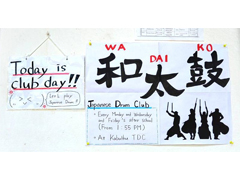 Today is
club day!!
(> <)
Let's play
Japanese Drum!!
WA DAI KO
和太鼓
Japanese Drum Club
• Every Monday and Wednesday
and Friday's after school
(From 1:55 PM)
• At Kalaulua TDC